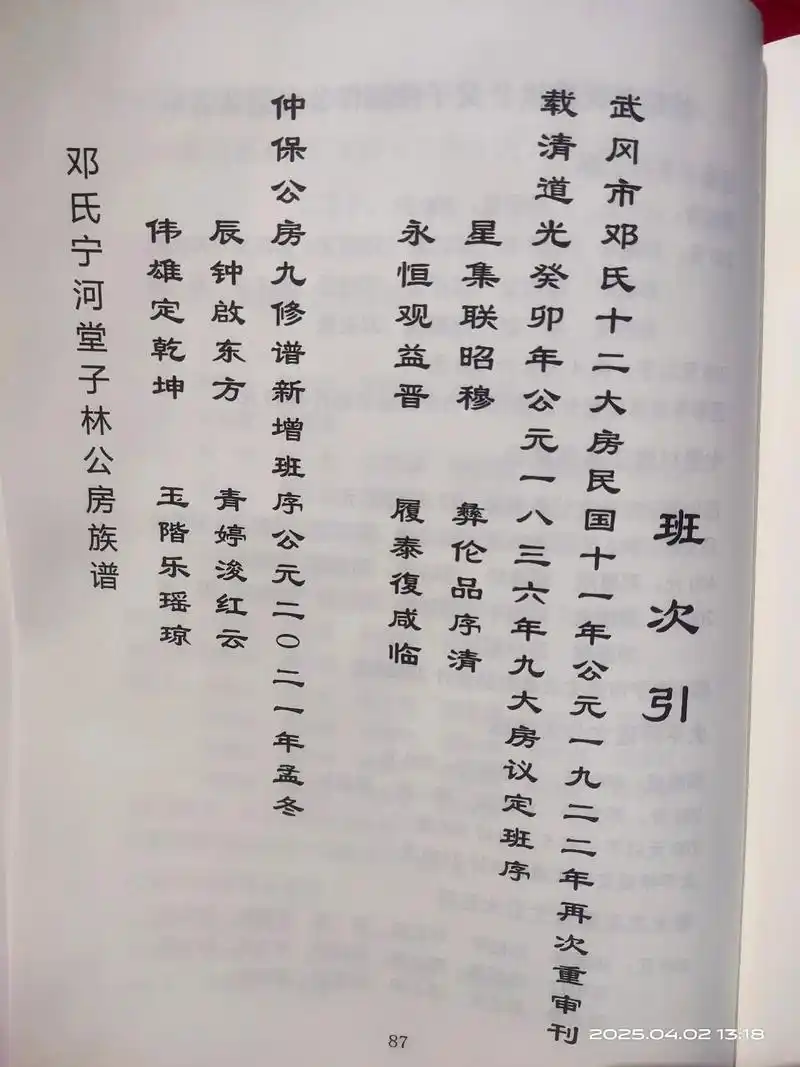 班次引
武冈市邓氏十二大房民国十一年公元一九二二年再次重审刊
载清道光癸卯年公元一八三六年九大房议定班序
星集联昭穆 彝伦品序清
永恒观益晋 履泰復咸临
仲保公房九修谱新增班序公元二〇二一年孟冬
辰钟啟东方 青婷浚红云
伟雄定乾坤 玉階乐瑶琼
邓氏宁河堂子林公房族谱
87
2025.04.02 13:18